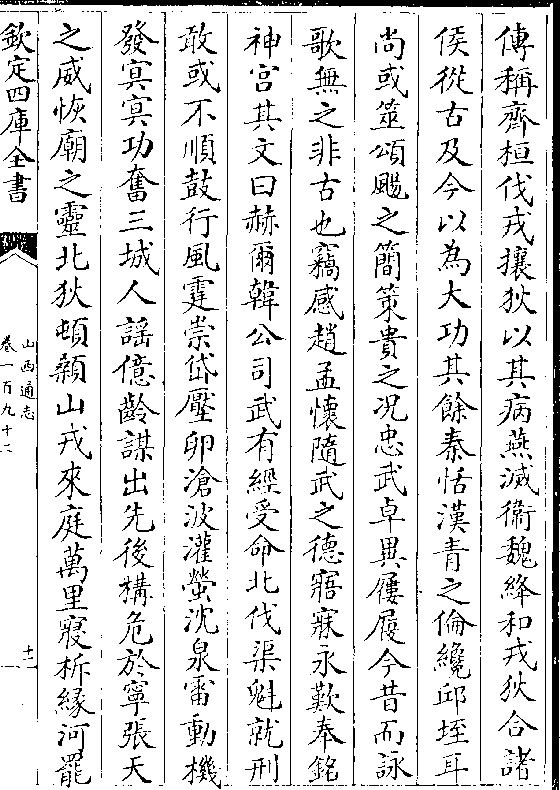 傳稱齊桓伐戎攘狄以其病燕滅衛魏絳和戎狄合諸
侯從古及今以為大功其餘秦恬漢青之倫纔邱垤耳
尚或筮頌颺之簡策貴之况忠武卓異屨屐今昔而詠
歌無之非古也竊感趙孟懷隨武之德寤寐永歎奉銘
神宮其文曰赫爾韓公司武有經受命北伐渠魁就刑
敢或不順鼓行風霆崇岱壓卵滄波灌螢沈泉畜動機
發冥冥功奮三城人謡億齡謀出先後構危於寧張天
之威恢廟之靈北狄頓顙山戎來庭萬里寢柝緣河罷
欽定四庫全書
山西通志
卷一百九十二
十一